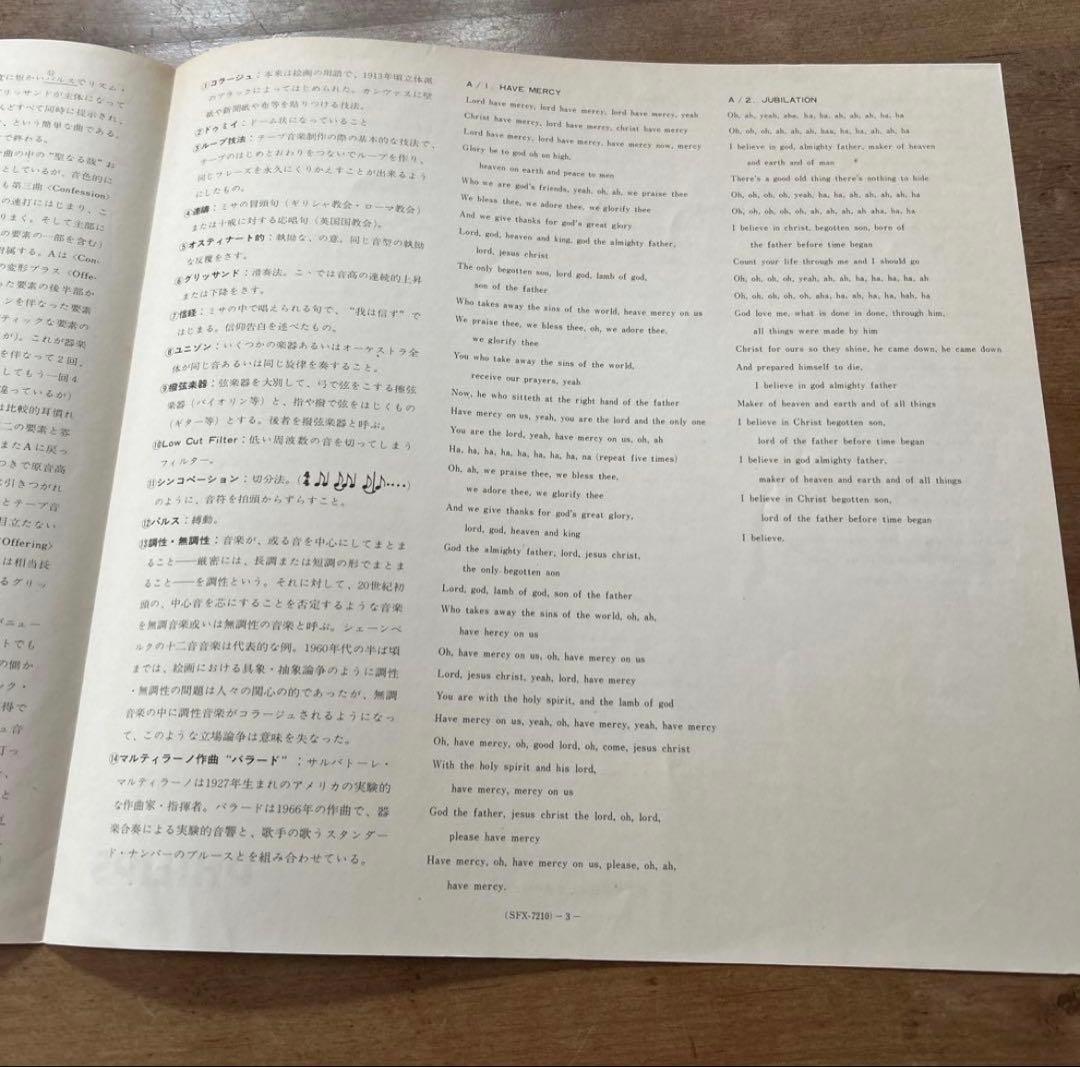 度に短かいパルスでリズム・
リッサンドが主体になって
んどすべて同時に提示され、
、という簡単な曲である。
で終わる。
曲の中の“聖なる哉”お
としているが、音色的に
も第三曲〈Confession〉
の連打にはじまり、こ
りまく。そして主部に
の要素の一部を含む)
附属する。Aは〈Con-
の変形プラス〈Offe-
った要素の後半部か
ンを伴なった要素
ティックな要素の
が)。これが器楽
を伴なって2回、
してもう一回4
違っているが)
は比較的耳慣れ
二の要素と雰
またAに戻っ
つきで原音高
に引きつがれ
とテープ音
目立たない
Offering〉
は相当長
るグリッ
メニュー
トでも
の側か
ック・
得で
ュ音
打っ
と
①コラージュ:本来は絵画の用語で、1913年頃立体派
のブラックによってはじめられた。カンヴァスに壁
紙や新聞紙や布等を貼りつける技法。
②ドゥミイ:ドーム状になっていること
③ループ技法:テープ音楽制作の際の基本的な技法で、
テープのはじめとおわりをつないでループを作り、
同じフレーズを永久にくりかえすことが出来るよう
にしたもの。
④連禱:ミサの冒頭句(ギリシャ教会・ローマ教会)
または十戒に対する応唱句(英国国教会)。
⑤オスティナート的:執拗な、の意。同じ音型の執拗
な反覆をさす。
⑥グリッサンド:滑奏法。こゝでは音高の連続的上昇
または下降をさす。
⑦信経:ミサの中で唱えられる句で、“我は信ず”で
はじまる。信仰告白を述べたもの。
⑧ユニゾン:いくつかの楽器あるいはオーケストラ全
体が同じ音あるいは同じ旋律を奏すること。
⑨撥弦楽器:弦楽器を大別して、弓で弦をこする擦弦
楽器(バイオリン等)と、指や撥で弦をはじくもの
(ギター等)とする。後者を撥弦楽器と呼ぶ。
⑩Low Cut Filter:低い周波数の音を切ってしまう
フィルター。
⑪シンコペーション:切分法。(♩♫♪♫♪♩♪····)
のように、音符を拍頭からずらすこと。
⑫パルス:縛動。
⑬調性・無調性:音楽が、或る音を中心にしてまとま
ること——厳密には、長調または短調の形でまとま
ること——を調性という。それに対して、20世紀初
頭の、中心音を芯にすることを否定するような音楽
を無調音楽或いは無調性の音楽と呼ぶ。シェーンベ
ルクの十二音音楽は代表的な例。1960年代の半ば頃
までは、絵画における具象・抽象論争のように調性
・無調性の問題は人々の関心の的であったが、無調
音楽の中に調性音楽がコラージュされるようになっ
て、このような立場論争は意味を失なった。
⑭マルティラーノ作曲“バラード”:サルバトーレ・
マルティラーノは1927年生まれのアメリカの実験的
な作曲家・指揮者。バラードは1966年の作曲で、器
楽合奏による実験的音響と、歌手の歌うスタンダー
ド・ナンバーのブルースとを組み合わせている。
A／1. HAVE MERCY
Lord have mercy, lord have mercy, lord have mercy, yeah
Christ have mercy, lord have mercy, christ have mercy
Lord have mercy, lord have mercy, have mercy now, mercy
Glory be to god oh on high,
heaven on earth and peace to men
Who we are god's friends, yeah, oh, ah, we praise thee
We bless thee, we adore thee, we glorify thee
And we give thanks for god's great glory
Lord, god, heaven and king, god the almighty father,
lord, jesus christ
The only begotten son, lord god, lamb of god,
son of the father
Who takes away the sins of the world, heave mercy on us
We praise thee, we bless thee, oh, we adore thee,
we glorify thee
You who take away the sins of the world,
receive our prayers, yeah
Now, he who sitteth at the right hand of the father
Have mercy on us, yeah, you are the lord and the only one
You are the lord, yeah, have mercy on us, oh, ah
Ha, ha, ha, ha, ha, ha, ha, ha, na (repeat five times)
Oh, ah, we praise thee, we bless thee,
we adore thee, we glorify thee
And we give thanks for god's great glory,
lord, god, heaven and king
God the almighty father, lord, jesus christ,
the only begotten son
Lord, god, lamb of god, son of the father
Who takes away the sins of the world, oh, ah,
have hercy on us
Oh, have mercy on us, oh, have mercy on us
Lord, jesus christ, yeah, lord, have mercy
You are with the holy spirit, and the lamb of god
Have mercy on us, yeah, oh, have mercy, yeah, have mercy
Oh, have mercy, oh, good lord, oh, come, jesus christ
With the holy spirit and his lord,
have mercy, mercy on us
God the father, jesus christ the lord, oh, lord,
please have mercy
Have mercy, oh, have mercy on us, please, oh, ah,
have mercy.
A／2. JUBILATION
Oh, ah, yeah, aha, ha, ha, ah, ah, ah, ha, ha
Oh, oh, oh, ah, ah, ah, haa, ha, ha, ah, ah, ha
I believe in god, almighty father, maker of heaven
and earth and of man
There's a good old thing there's nothing to hide
Oh, oh, oh, oh, yeah, ha, ah, ah, ah, ah, ah, ha
Oh, oh, oh, oh, oh, ah, ah, ah, ah, aha, ha, ha
I believe in christ, begotten son, born of
the father before time began
Count your life through me and I should go
Oh, oh, oh, oh, yeah, ah, ah, ha, ha, ha, ha, ah
Oh, oh, oh, oh, oh, aha, ha, ah, ha, ha, hah, ha
God love me, what is done in done, through him,
all things were made by him
Christ for ours so they shine, he came down, he came down
And prepared himself to die,
I believe in god almighty father
Maker of heaven and earth and of all things
I believe in Christ begotten son,
lord of the father before time began
I believe in god almighty father,
maker of heaven and earth and of all things
I believe in Christ begotten son,
lord of the father before time began
I believe.
(SFX-7210)－3－